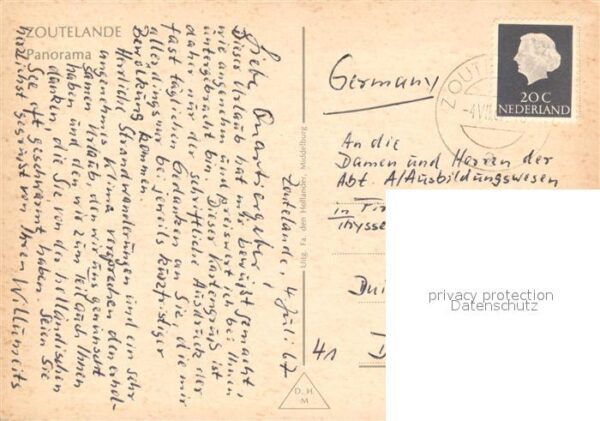 ZOUTELANDE
Panorama
Zoutelande, 4. Juli 67
Liebe Quartiergeber!
Dieser Urlaub hat mir bewußt gemacht,
wie angenehm und preiswert ich bei Ihnen
untergebracht bin. Dieser Kartengruß ist
daher nur der schriftliche Ausdruck der
fast täglichen Gedanken an Sie, die mir
allerdings nur bei jeweils kurzfristiger
Bewölkung kommen.
Herrliche Strandwanderungen und ein sehr
angenehmes Klima versprechen den
Urlaub, den wir uns gewünscht
haben und den wir zum Teil auch Ihnen
danken, die Sie von der holländischen
See oft geschwärmt haben. Seien Sie
herzlichst gegrüßt von Ihrem
Uitg. Fa. den Hollander, Middelburg
D. H.
M
Germany
20 C
NEDERLAND
ZOUTE
-4 VII
An die
Damen und Herren der
Abt. A/Ausbildungswesen
in
Thysse
Dui
41
privacy protection
Datenschutz